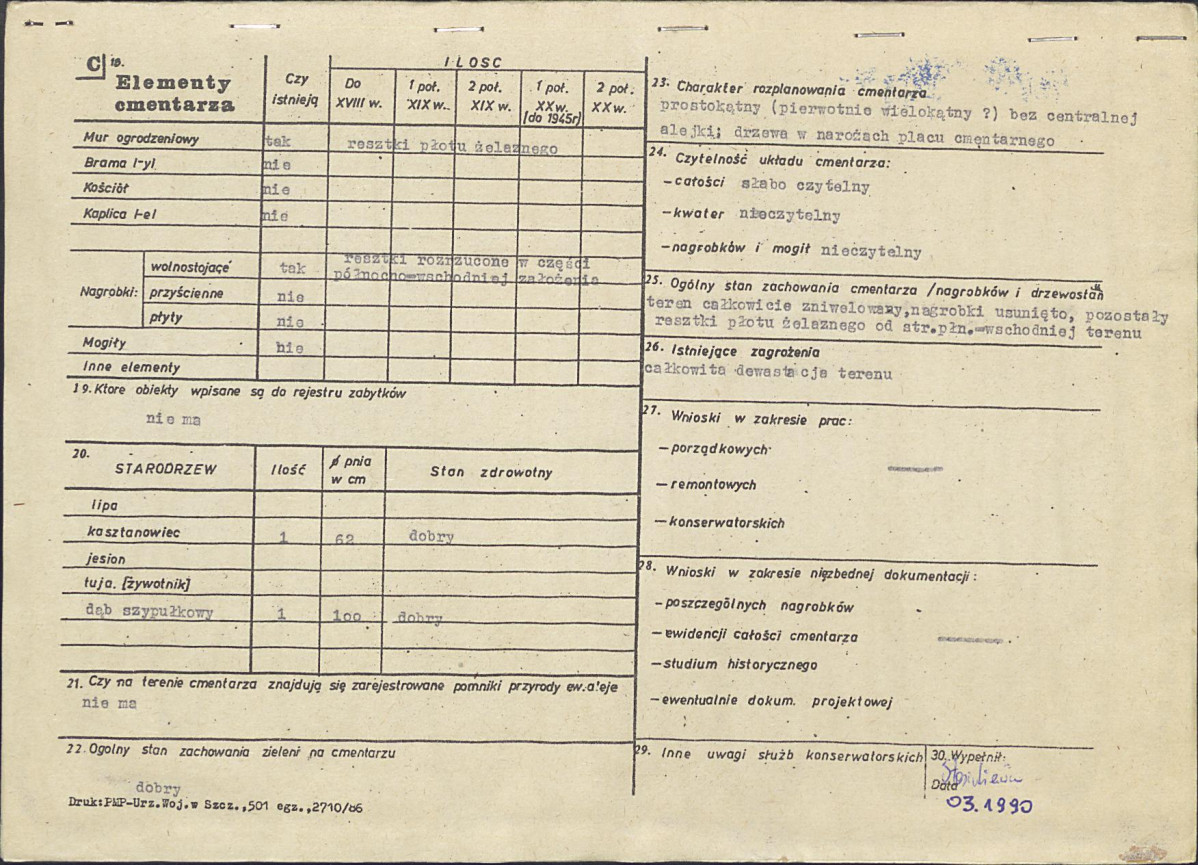 C 18.
Elementy
cmentarza
Czy
istnieją
ILOSC
Do
XVIII w.
1 poł.
XIX w.
2 poł.
XIX w.
1 poł.
XX w.
[do 1945r]
2 poł.
XX w.
Mur ogrodzeniowy tak resztki płotu żelaznego
Brama /-y/ nie
Kościół nie
Kaplica /-e/ nie
Nagrobki:
wolnostojące tak resztki rozrzucone w części
północno-wschodniej założenia
przyścienne nie
płyty nie
Mogiły nie
Inne elementy
19. Ktore obiekty wpisane są do rejestru zabytków
nie ma
20.
STARODRZEW
Ilość
ϕ pnia
w cm
Stan zdrowotny
lipa
kasztanowiec 1 62 dobry
jesion
tuja. [żywotnik]
dąb szypułkowy 1 100 dobry
21. Czy na terenie cmentarza znajdują się zarejestrowane pomniki przyrody ew. aleje
nie ma
22. Ogolny stan zachowania zieleni na cmentarzu
dobry
Druk: PMP-Urz.Woj.w Szcz.,501 egz.,2710/86
23. Charakter rozplanowania cmentarza
prostokątny (pierwotnie wielokątny ?) bez centralnej
alejki; drzewa w narożach placu cmentarnego
24. Czytelność układu cmentarza:
- całości słabo czytelny
- kwater nieczytelny
- nagrobków i mogił nieczytelny
25. Ogólny stan zachowania cmentarza /nagrobków i drzewostan
teren całkowicie zniwelowany, nagrobki usunięto, pozostały
resztki płotu żelaznego od str.płn.-wschodniej terenu
26. Istniejące zagrożenia
całkowita dewastacja terenu
27. Wnioski w zakresie prac:
- porządkowych
- remontowych
- konserwatorskich
28. Wnioski w zakresie niezbednej dokumentacji:
- poszczególnych nagrobków
- ewidencji całości cmentarza
- studium historycznego
- ewentualnie dokum. projektowej
29. Inne uwagi służb konserwatorskich
30. Wypełnił:
Data
03.1990